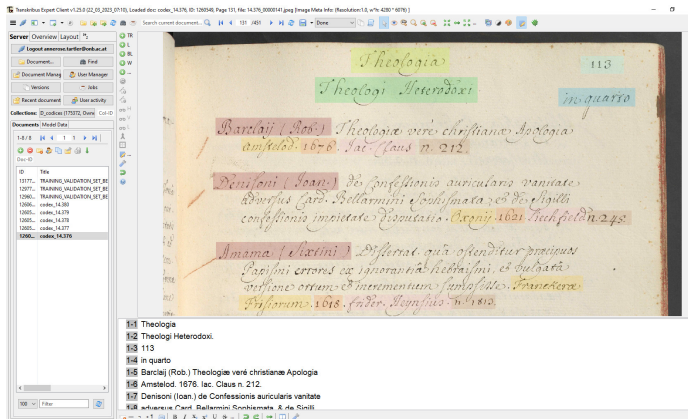 Transkribus Expert Client v1.25.0 (22_03_2023_07:10), Loaded doc: codex_14.376, ID: 1260349, Page 131, file: 14.376_00000141.jpeg [Image Meta Info: (Resolution:1.0, w*h: 4280 * 6076) ]
Server Overview Layout
Logout annerose.tartler@onb.ac.at
Document...
Find
Document Manag
User Manager
Versions
Jobs
Recent document
User activity
Collections:
Col-ID
Documents Model Data
1-8 / 8
1
Doc-ID
ID Title
13177... TRAINING_VALIDATION_SET_BE
12977... TRAINING_VALIDATION_SET_BE
12960... TRAINING_VALIDATION_SET_BE
12606... codex_14.380
12605... codex_14.379
12605... codex_14.378
12605... codex_14.377
1260... codex_14.376
100
Filter
Search current document...
131 /451
Done
TR
L
BL
W
Theologia
113
Theologi Heterodoxi
in quarto
Barclaij (Rob.) Theologiæ veré christianæ Apologia
Amstelod. 1676. Iac. Claus n. 212.
Denisoni (Ioan.) de Confessionis auricularis vanitate
adversus Card. Bellarmini Sophismata, & de Sigilli
confessionis impietate disputatio. Oxonij. 1621. Lichfield n. 245.
Amama (Sixtini) Dissertat. quâ ostenditur præcipuos
Papismi errores ex ignorantiâ hebraismi, et vulgatâ
versione ortum & incrementum sumpsisse. Franekeræ
Frisiorum. 1618. frider. Heynsius. n. 1812.
1-1 Theologia
1-2 Theologi Heterodoxi.
1-3 113
1-4 in quarto
1-5 Barclaij (Rob.) Theologiæ veré christianæ Apologia
1-6 Amstelod. 1676. Iac. Claus n. 212.
1-7 Denisoni (Ioan.) de Confessionis auricularis vanitate
1-8 adversus Card. Bellarmini Sophismata, & de Sigilli